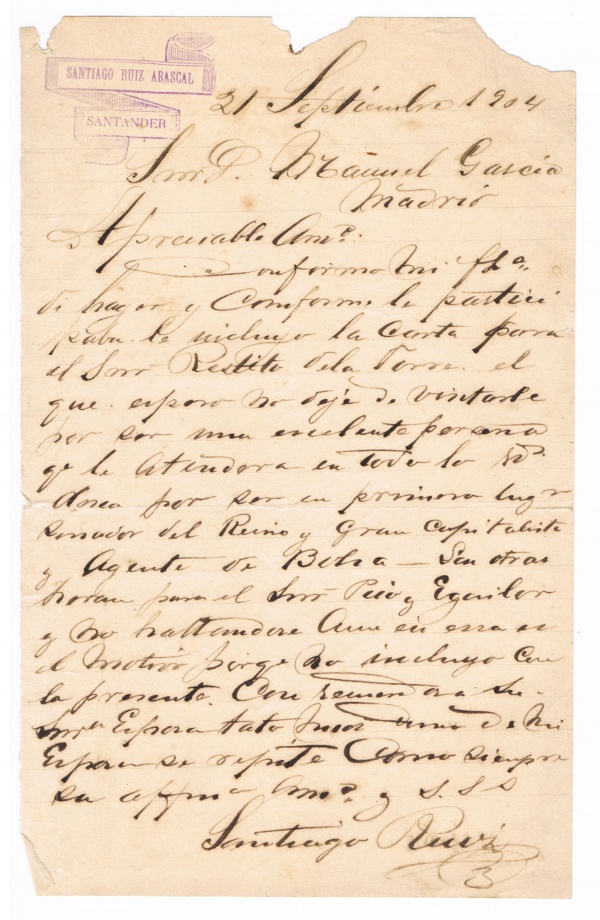 SANTIAGO RUIZ ABASCAL
SANTANDER
21 Septiembre 1904
Snor D. Manuel Garcia
Madrid
Apreciable Amº:
Conforme Mi fha.
di hager y Comforme le partici
paba le incluyo la Carta para
el Snor Restito dela Torre. el
que espero no deje de visitarle
por ser una excelente persona
qe le Atendera en todo lo
desea por ser en primero lugr
senador del Reino y Gran Capitaliste
y Agente de Bolsa — Las otras
heran para el Snor Pico y Eguilor
y no hallandose Aun en essa es
el Motivo porqe no incluyo Con
la presente. Con recuerdos a Su
Snra Esposa tato mios Como de Mi
Esposa se repite Como siempre
su affmo Amº. y S.S.S
Santiago Ruiz